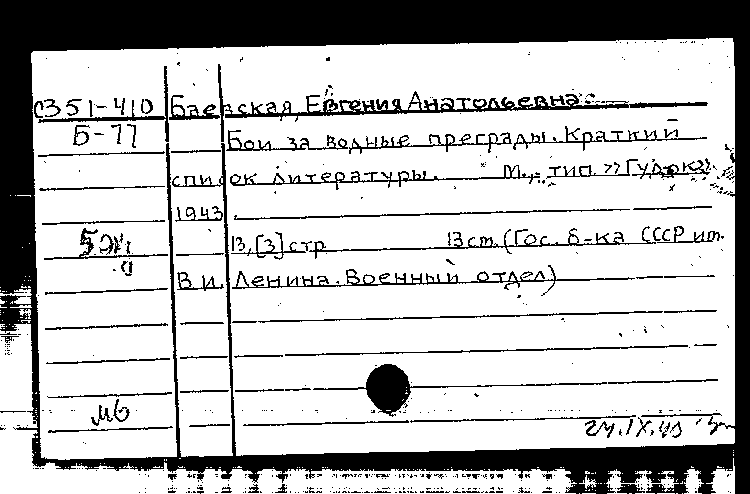 С351-410 Баевская, Евгения Анатольевна.
Б-77 Бои за водные преграды. Краткий
список литературы. М., тип. "Гудок",
1943.
13,[3] стр 13 см. (Гос. б-ка СССР им.
В.И. Ленина. Военный отдел)
5 эк.
мб